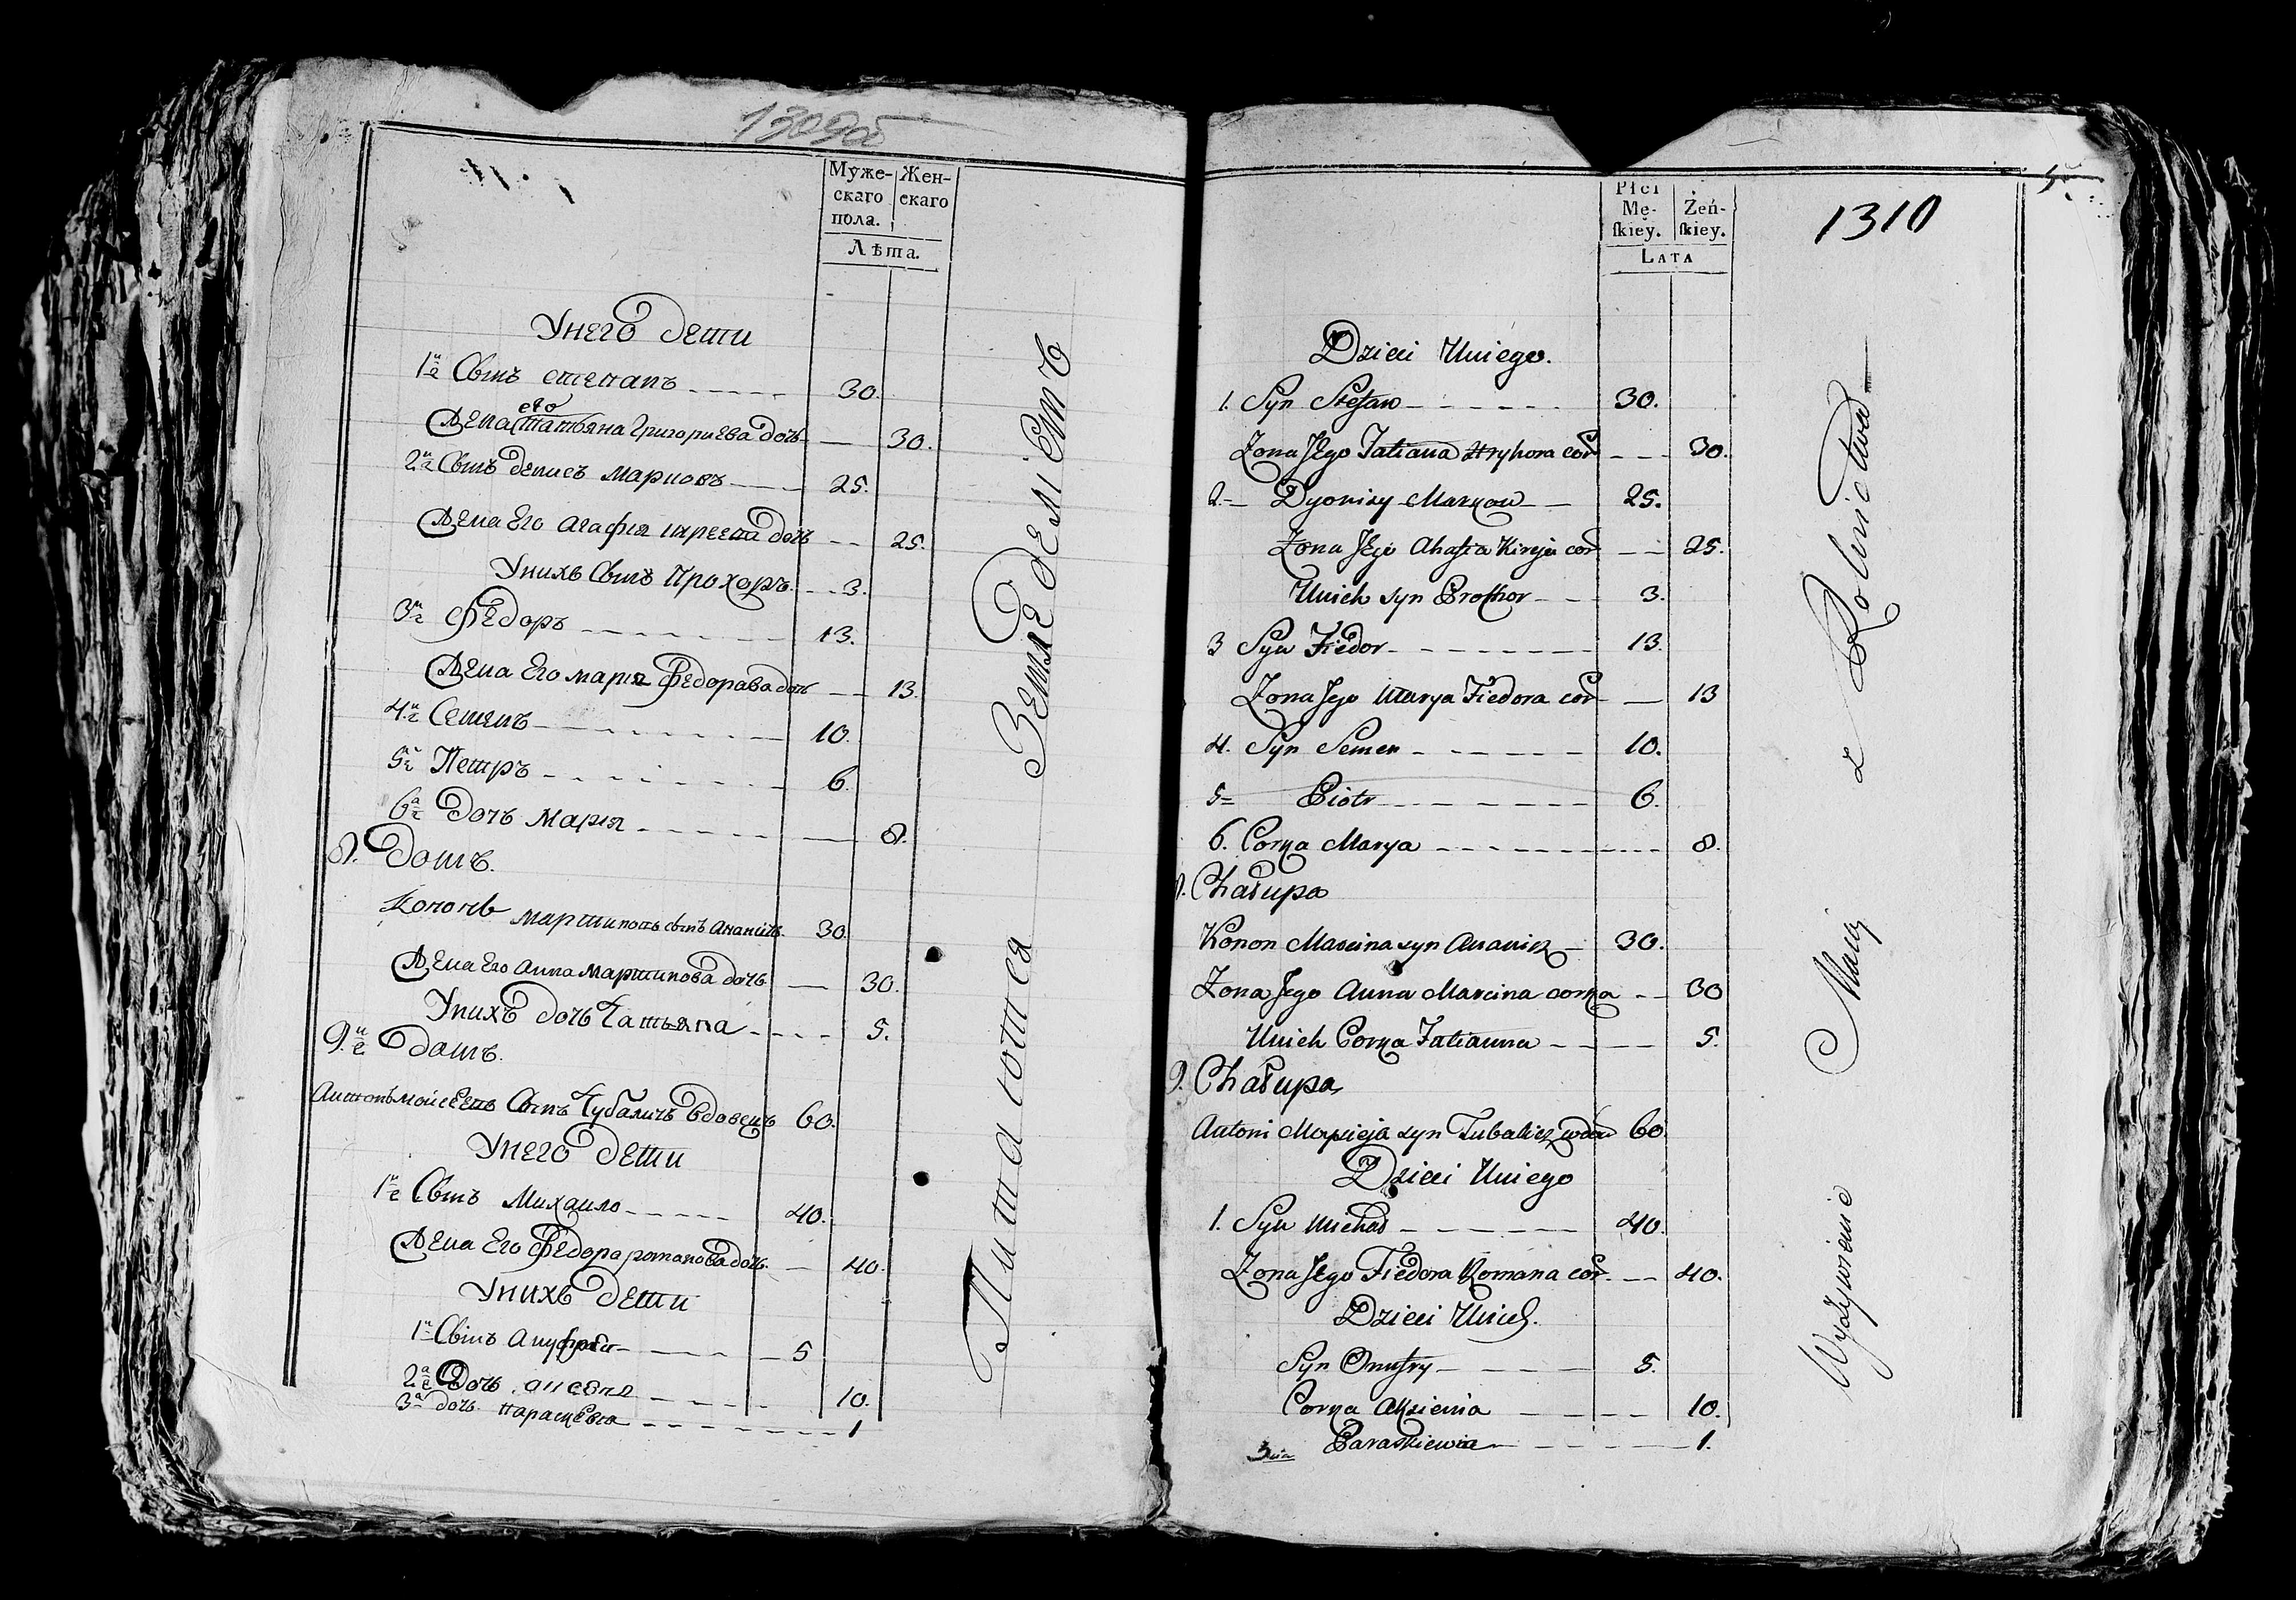 1309об
Муже-
скаго
пола.
Жен-
скаго
Лѣта.
Унего Дети
1й Сынъ степанъ 30.
Жена его татьяна григориева дочь 30.
2й Сынъ денисъ марковъ 25.
Жена Его агафия киреева дочь 25.
Унихъ Сынъ Прохоръ 3.
3й Федоръ 13.
Жена Его мария Федорава дочь 13.
4й Семенъ 10.
5й Петръ 6.
6а Дочь Мария 8.
8. Домъ.
Кононъ мартиновъ сынъ Ананичъ 30.
Жена Его анна мартинова дочь 30.
Унихъ дочь Татьяна 5.
9й Домъ.
Антонъ мойсеевъ Сынъ Чубаличъ вдовецъ 60.
Унего Дети
1й Сынъ Михаило 40.
Жена Его Федора романова дочь 40.
Унихъ Дети
1й Сынъ Ануфрей 5
2а Дочь аксеня 10.
3а дочь параскевия 1
Питаются Земледелiемъ
Płci
Mę-
ſkiey.
Żeń-
ſkiey.
LATA
1310
Dzieci Uniego.
1. Syn Stefan 30.
Zona Jego Tatiana Hryhora cor 30.
2. Dyonizy Markow 25.
Zona Jego Ahafia Kireja cor 25.
Unich syn Prochor 3.
3 Syn Fiedor 13.
Zona Jego Marya Fiedora cor 13
4. Syn Semen 10.
5 Piotr 6.
6. Corka Marya 8.
8. Chałupa
Konon Marcina syn Ananicz 30.
Zona Jego Anna Marcina corka 30
Unich Corka Tatianna 5.
9. Chałupa
Antoni Moysieja syn Tubalicz wdow 60
Dzieci Uniego
1. Syn Michał 40.
Zona Jego Fiedora Romana cor 40.
Dzieci Unich.
Syn Onufry 5.
Corka Aksienia 10.
3cia Paraskiewia 1.
Wyżywienie Maią z Rolnictwa